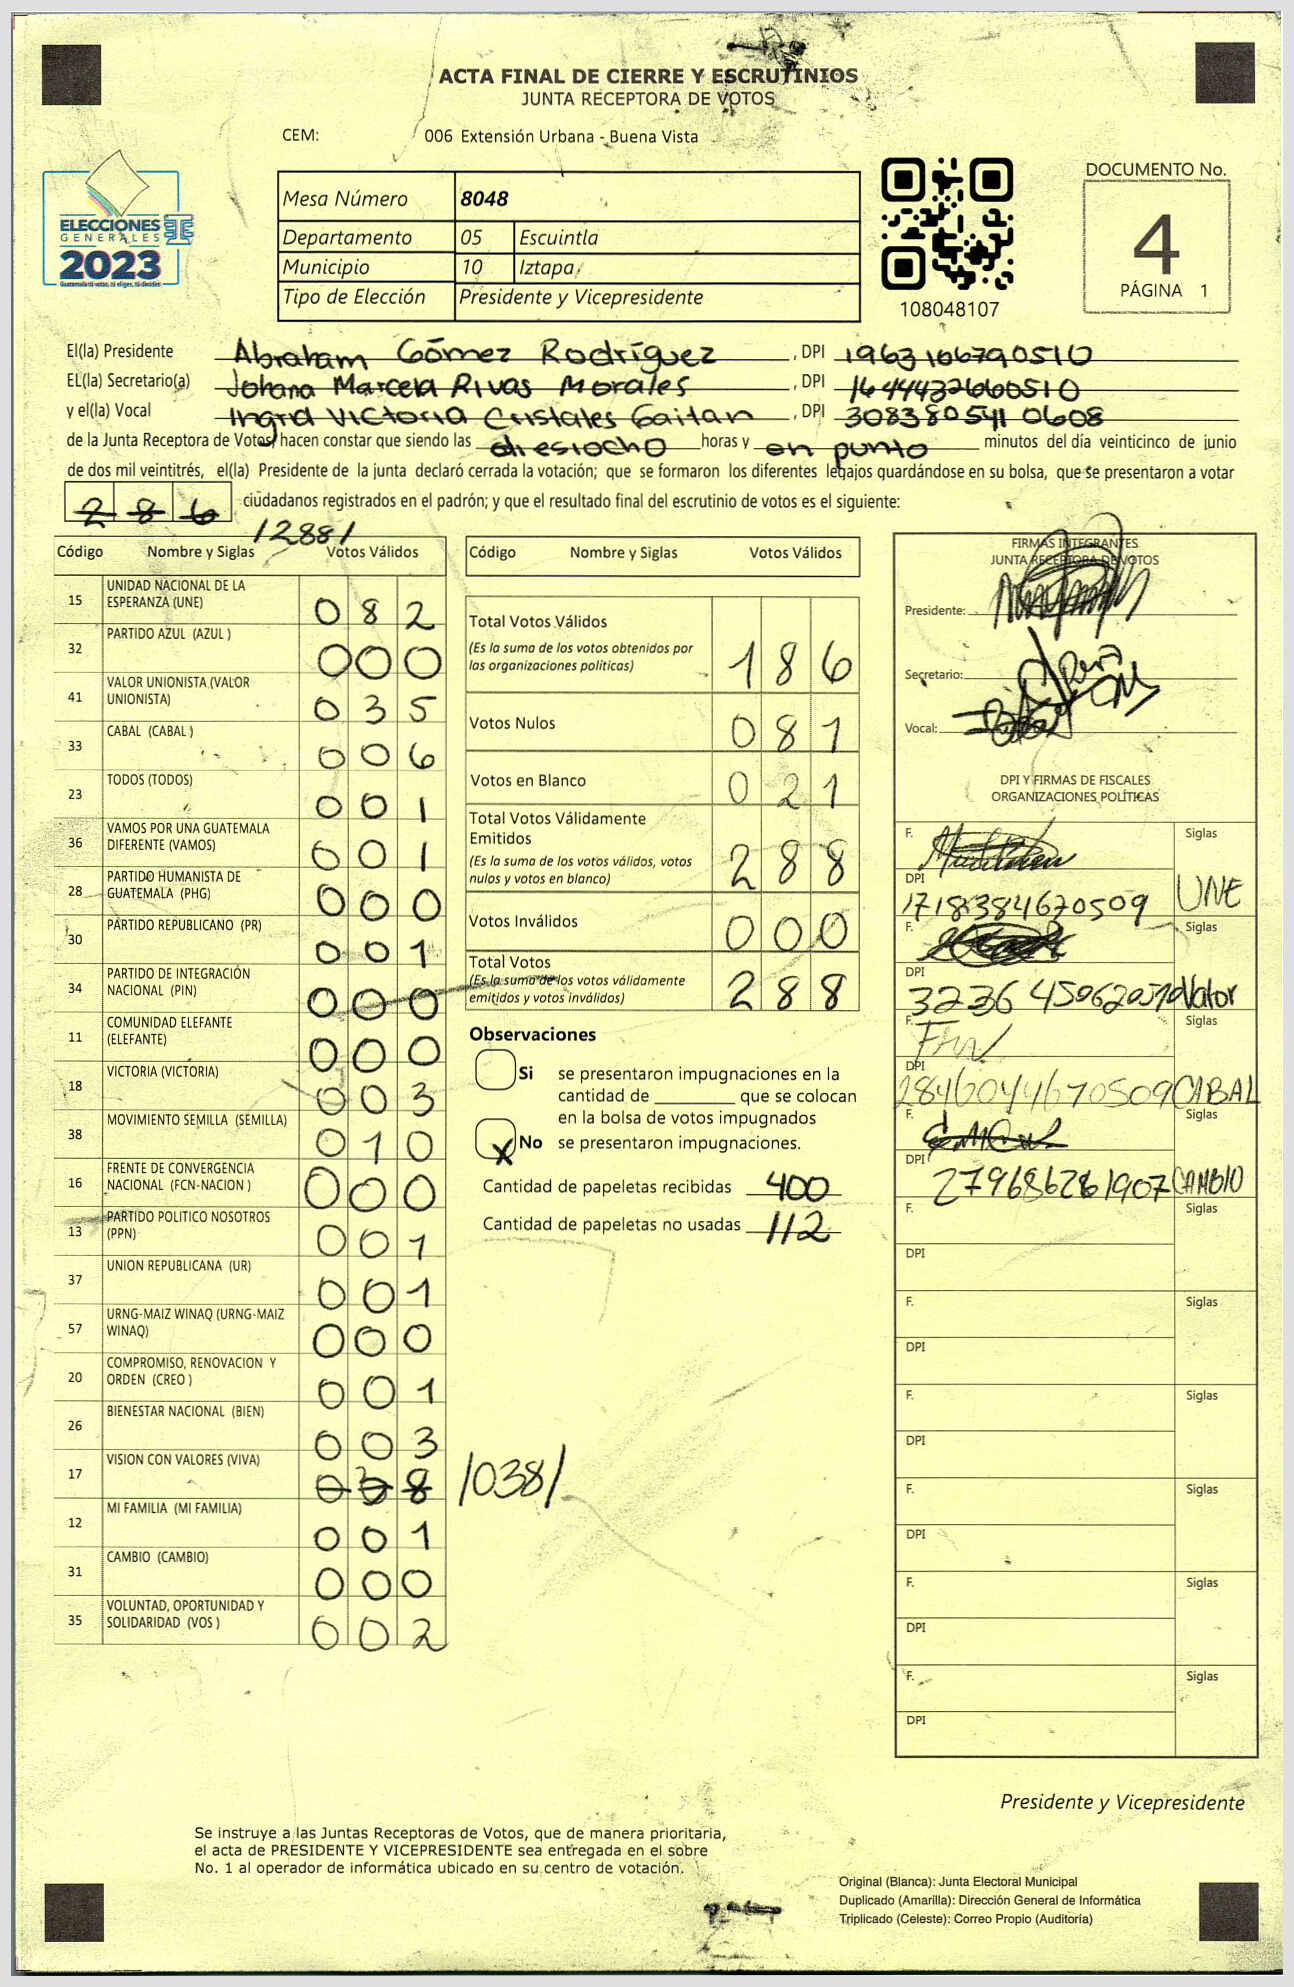 ACTA FINAL DE CIERRE Y ESCRUTINIOS
JUNTA RECEPTORA DE VOTOS
CEM: 006 Extensión Urbana - Buena Vista
ELECCIONES
GENERALES
2023
Guatemala tú votas, tú eliges, tú decides
Mesa Número 8048
Departamento 05 Escuintla
Municipio 10 Iztapa
Tipo de Elección Presidente y Vicepresidente
108048107
DOCUMENTO No.
4
PÁGINA 1
El(la) Presidente Abraham Gómez Rodríguez, DPI 1963166790510
EL(la) Secretario(a) Johana Marcela Rivas Morales, DPI 1644432660510
y el(la) Vocal Ingrid Victoria Cristales Gaitan, DPI 3083805410608
de la Junta Receptora de Votos, hacen constar que siendo las diesiocho horas y en punto minutos del día veinticinco de junio
de dos mil veintitrés, el(la) Presidente de la junta declaró cerrada la votación; que se formaron los diferentes legajos guardándose en su bolsa, que se presentaron a votar
286 ciudadanos registrados en el padrón; y que el resultado final del escrutinio de votos es el siguiente:
/288/
Código Nombre y Siglas Votos Válidos
15 UNIDAD NACIONAL DE LA ESPERANZA (UNE) 082
32 PARTIDO AZUL (AZUL ) 000
41 VALOR UNIONISTA (VALOR UNIONISTA) 035
33 CABAL (CABAL ) 006
23 TODOS (TODOS) 001
36 VAMOS POR UNA GUATEMALA DIFERENTE (VAMOS) 001
28 PARTIDO HUMANISTA DE GUATEMALA (PHG) 000
30 PARTIDO REPUBLICANO (PR) 001
34 PARTIDO DE INTEGRACIÓN NACIONAL (PIN) 000
11 COMUNIDAD ELEFANTE (ELEFANTE) 000
18 VICTORIA (VICTORIA) 003
38 MOVIMIENTO SEMILLA (SEMILLA) 010
16 FRENTE DE CONVERGENCIA NACIONAL (FCN-NACION ) 000
13 PARTIDO POLITICO NOSOTROS (PPN) 001
37 UNION REPUBLICANA (UR) 001
57 URNG-MAIZ WINAQ (URNG-MAIZ WINAQ) 000
20 COMPROMISO, RENOVACION Y ORDEN (CREO ) 001
26 BIENESTAR NACIONAL (BIEN) 003
17 VISION CON VALORES (VIVA) 038 /038/
12 MI FAMILIA (MI FAMILIA) 001
31 CAMBIO (CAMBIO) 000
35 VOLUNTAD, OPORTUNIDAD Y SOLIDARIDAD (VOS ) 002
Código Nombre y Siglas Votos Válidos
Total Votos Válidos 186
(Es la suma de los votos obtenidos por
las organizaciones políticas)
Votos Nulos 081
Votos en Blanco 021
Total Votos Válidamente
Emitidos 288
(Es la suma de los votos válidos, votos
nulos y votos en blanco)
Votos Inválidos 000
Total Votos 288
(Es la suma de los votos válidamente
emitidos y votos inválidos)
Observaciones
Si se presentaron impugnaciones en la
cantidad de ________ que se colocan
en la bolsa de votos impugnados
X No se presentaron impugnaciones.
Cantidad de papeletas recibidas 400
Cantidad de papeletas no usadas 112
FIRMAS INTEGRANTES
JUNTA RECEPTORA DE VOTOS
Presidente:
Secretario:
Vocal:
DPI Y FIRMAS DE FISCALES
ORGANIZACIONES POLÍTICAS
F. Siglas
DPI 1718384670509 UNE
F. Siglas
DPI 3236450620510 Valor
F. Siglas
DPI 2846044670509 CABAL
F. Siglas
DPI 2796862861907 CAMBIO
F. Siglas
DPI
F. Siglas
DPI
F. Siglas
DPI
F. Siglas
DPI
F. Siglas
DPI
F. Siglas
DPI
Presidente y Vicepresidente
Se instruye a las Juntas Receptoras de Votos, que de manera prioritaria,
el acta de PRESIDENTE Y VICEPRESIDENTE sea entregada en el sobre
No. 1 al operador de informática ubicado en su centro de votación.
Original (Blanca): Junta Electoral Municipal
Duplicado (Amarilla): Dirección General de Informática
Triplicado (Celeste): Correo Propio (Auditoría)